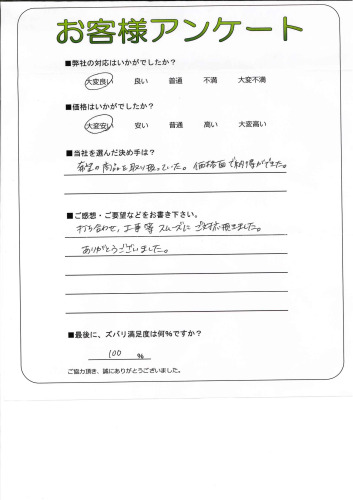 お客様アンケート
■弊社の対応はいかがでしたか？
大変良い 良い 普通 不満 大変不満
■価格はいかがでしたか？
大変安い 安い 普通 高い 大変高い
■当社を選んだ決め手は？
希望の商品を取り扱っていた。価格面で納得ができた。
■ご感想・ご要望などをお書き下さい。
打ち合わせ、工事等スムーズにご対応頂きました。
ありがとうございました。
■最後に、ズバリ満足度は何%ですか？
100 %
ご協力頂き、誠にありがとうございました。